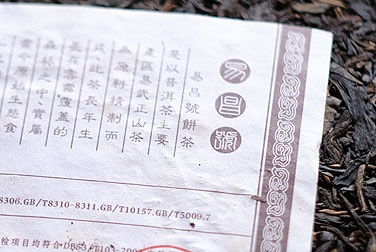 易昌號
易昌號餅茶
是以普洱茶主要
產區易武正山茶
為原料精制而
成此茶長年生
長在雲霧蓋的
森林之中貴屬
雲今原始生態食
8306.GB/T8310-8311.GB/T10157.GB/T5009.7
检项目均符合DB53/T103-200